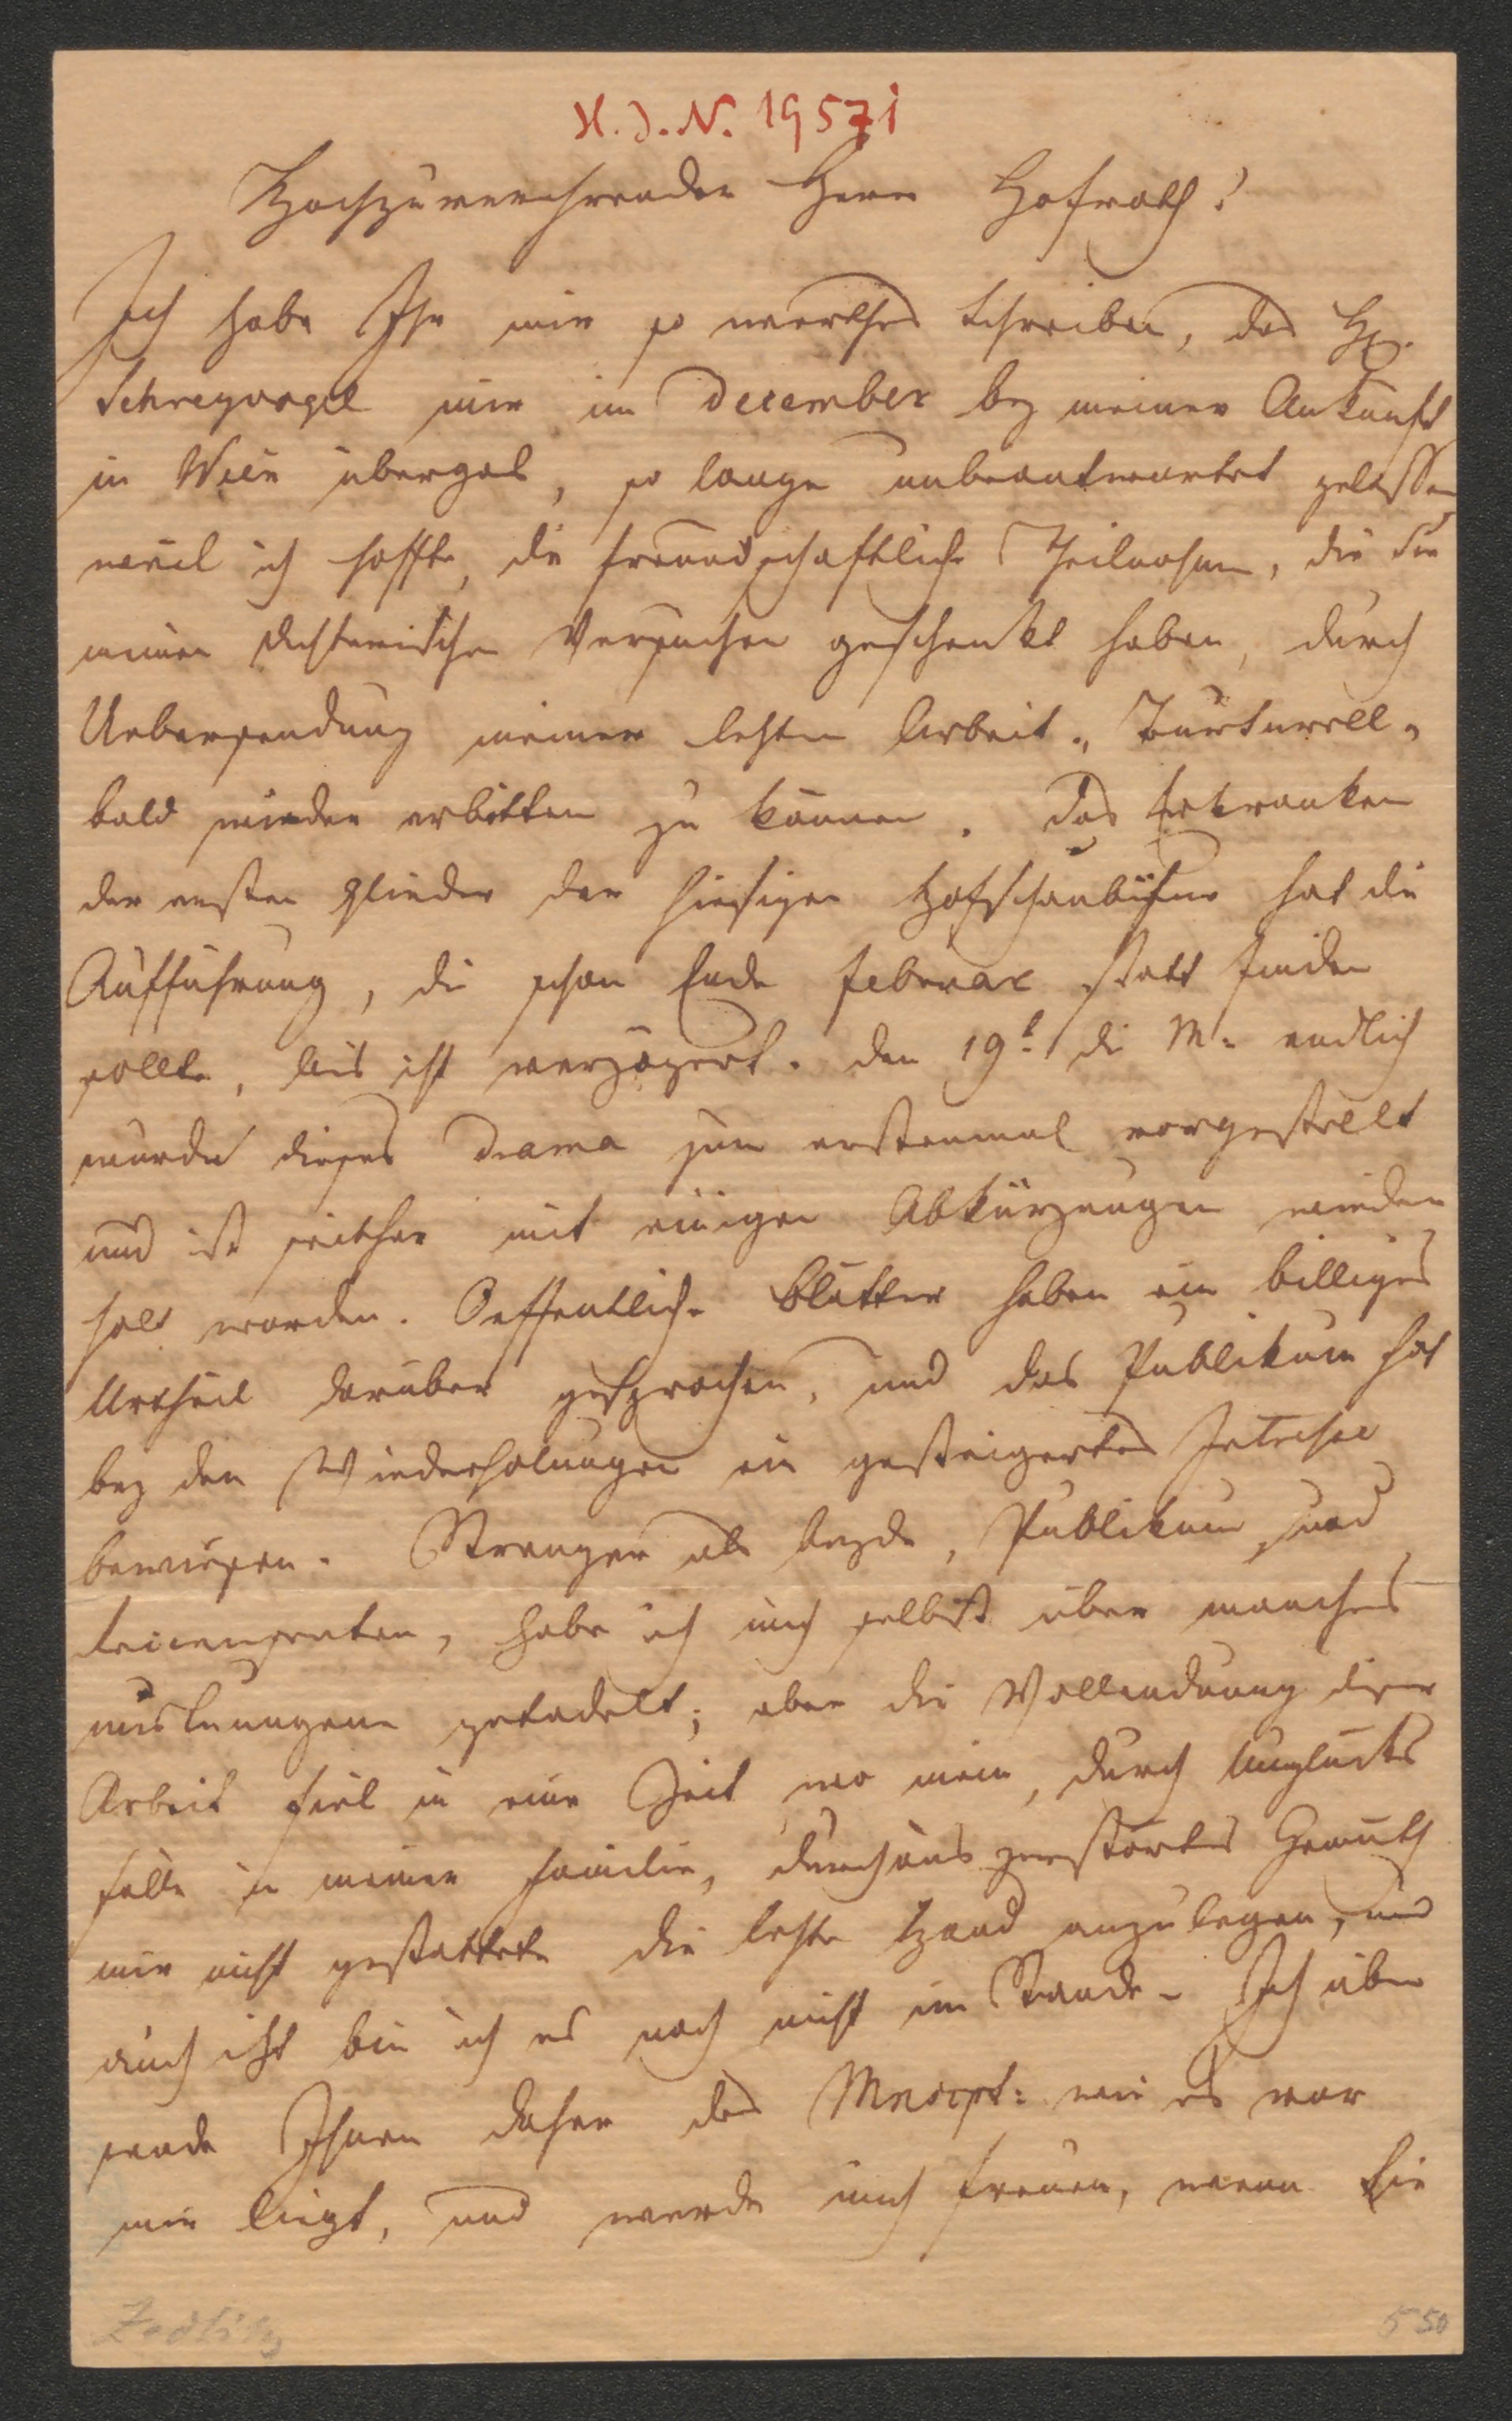 H. I. N. 19571
Hochzuverehrender Herr Hofrath!
Ich habe Ihr mir so werthes Schreiben, das H.
Schreyvogel mir im December bey meiner Ankunft
in Wien übergab, so lange unbeantwortet gelassen,
weil ich hoffte, die freundschaftliche Theilnahme, die Sie
meinen dichterischen Versuchen geschenkt haben, durch
Uebersendung meiner letzten Arbeit „Turturell“
bald wieder erbitten zu können. Das Erkranken
der ersten Glieder der hiesigen Hofschaubühne hat die
Aufführung, die schon Ende Februar statt finden
sollte, bis itzt verzögert. Den 19t. d. M. endlich
wurde dieses Drama zum erstenmal vorgestellt
und ist seither mit einigen Abkürzungen wieder
holt worden. Oeffentliche Blätter haben ein billiges
Urtheil darüber gesprochen, und das Publikum hat
bey den Wiederholungen ein gesteigertes Intresse
bewiesen. Strenger als beyde, Publikum und
Recensenten, habe ich mich selbst über manches
mislungene getadelt; aber die Vollendung dieser
Arbeit fiel in eine Zeit, wo mein, durch Unglücks
fälle in meiner Familie, durchaus zerstörtes Gemüth
mir nicht gestattete die letzte Hand anzulegen, und
auch itzt bin ich es noch nicht im Stande. Ich über
sende Ihnen daher das Mnscpt: wie es vor
mir liegt, und werde mich freuen, wenn Sie
Zedlitz
550